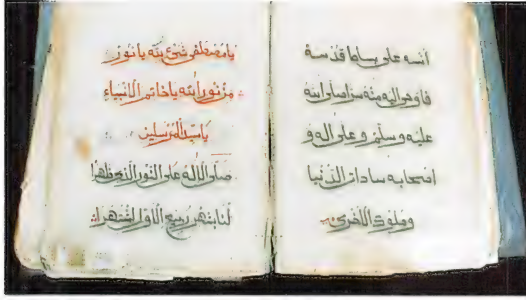 أنسه على بساط قدسه
فاوحى اليه منه سرا صلى الله
عليه وسلم و على اله و
اصحابه سادات الدنيا
وملوك الاخرى
يا مصطفى شيء لله يا نور
من نور الله يا خاتم الانبياء
يا سيد المرسلين
صلى الاله على النور الذى ظهرا
لنا بشهر ربيع الاول اشتهرا